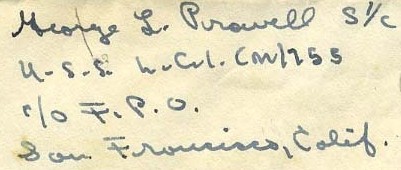 George L. Purowell S 1/c
U.S.S. L.C.I. (M) 755
c/o F.P.O.
San Francisco, Calif.